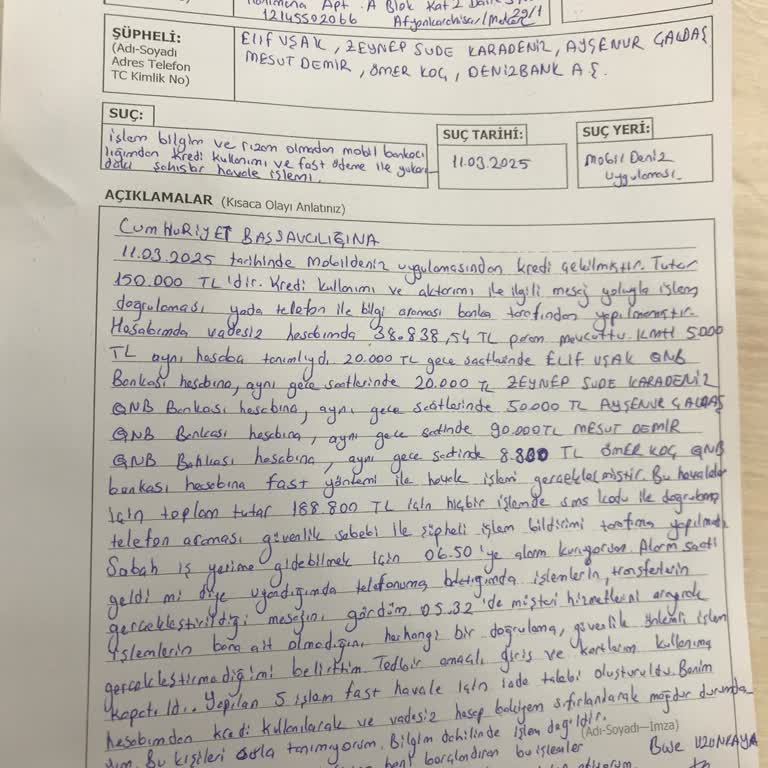 Apt. A Blok Kat 2 Daire
12145502066 Afyonkarahisar/Merkez 29/1
ŞÜPHELİ:
(Adı-Soyadı
Adres Telefon
TC Kimlik No)
ELİF UŞAK, ZEYNEP SUDE KARADENİZ, AYŞENUR ÇALDAŞ
MESUT DEMİR, ÖMER KOÇ, DENİZBANK A.Ş.
SUÇ:
işlem bilgim ve rızam olmadan mobil bankacı
lığımdan kredi kullanımı ve fast ödeme ile yukarı
daki şahıslar havale işlemi.
SUÇ TARİHİ:
11.03.2025
SUÇ YERİ:
Mobil Deniz
Uygulaması
AÇIKLAMALAR (Kısaca Olayı Anlatınız)
CUMHURİYET BAŞSAVCILIĞINA
11.03.2025 tarihinde Mobildeniz uygulamasından kredi çekilmiştir. Tutar
150.000 TL'dir. Kredi kullanımı ve aktarımı ile ilgili mesaj yoluyla işlem
doğrulaması yada telefon ile bilgi araması banka tarafından yapılmamıştır.
Hesabımda vadesiz hesabımda 38.838,54 TL param mevcuttu. KMH 5000
TL aynı hesaba tanımlıydı. 20.000 TL gece saatlerinde ELİF UŞAK QNB
Bankası hesabına, aynı gece saatlerinde 20.000 TL ZEYNEP SUDE KARADENİZ
QNB Bankası hesabına, aynı gece saatlerinde 50.000 TL AYŞENUR ÇALDAŞ
QNB Bankası hesabına, aynı gece saatinde 90.000 TL MESUT DEMİR
QNB Bankası hesabına, aynı gece saatinde 8.800 TL ÖMER KOÇ QNB
bankası hesabına fast yöntemi ile havale işlemi gerçekleşmiştir. Bu havaleler
için toplam tutar 188.800 TL için hiçbir işlemde sms kodu ile doğrulama
telefon araması güvenlik sebebi ile şüpheli işlem bildirimi tarafıma yapılmadı
Sabah iş yerime gidebilmek için 06.50'ye alarm kuruyorum. Alarm saati
geldi mi diye uyandığımda telefonuma baktığımda işlemlerin, transferlerin
gerçekleştirildiği mesajını gördüm. 05.32'de müşteri hizmetlerini arayarak
işlemlerin bana ait olmadığını, herhangi bir doğrulama, güvenlik önlemli işlem
gerçekleştirmediğimi belirttim. Tedbir amaçlı giriş ve kartların kullanıma
kapatıldı. Yapılan 5 işlem fast havale için iade talebi oluşturuldu. Benim
hesabımdan kredi kullanılarak ve vadesiz hesap bakiyem sıfırlanarak mağdur durumda
yım. Bu kişileri asla tanımıyorum. Bilgim dahilinde işlem değildir.
(Adı-Soyadı—İmza)
beni borçlandıran bu işlemler
Buse UZUNKAYA